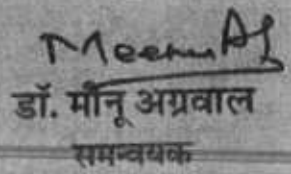 Meenu Ag
डॉ. मीनू अग्रवाल
समन्वयक